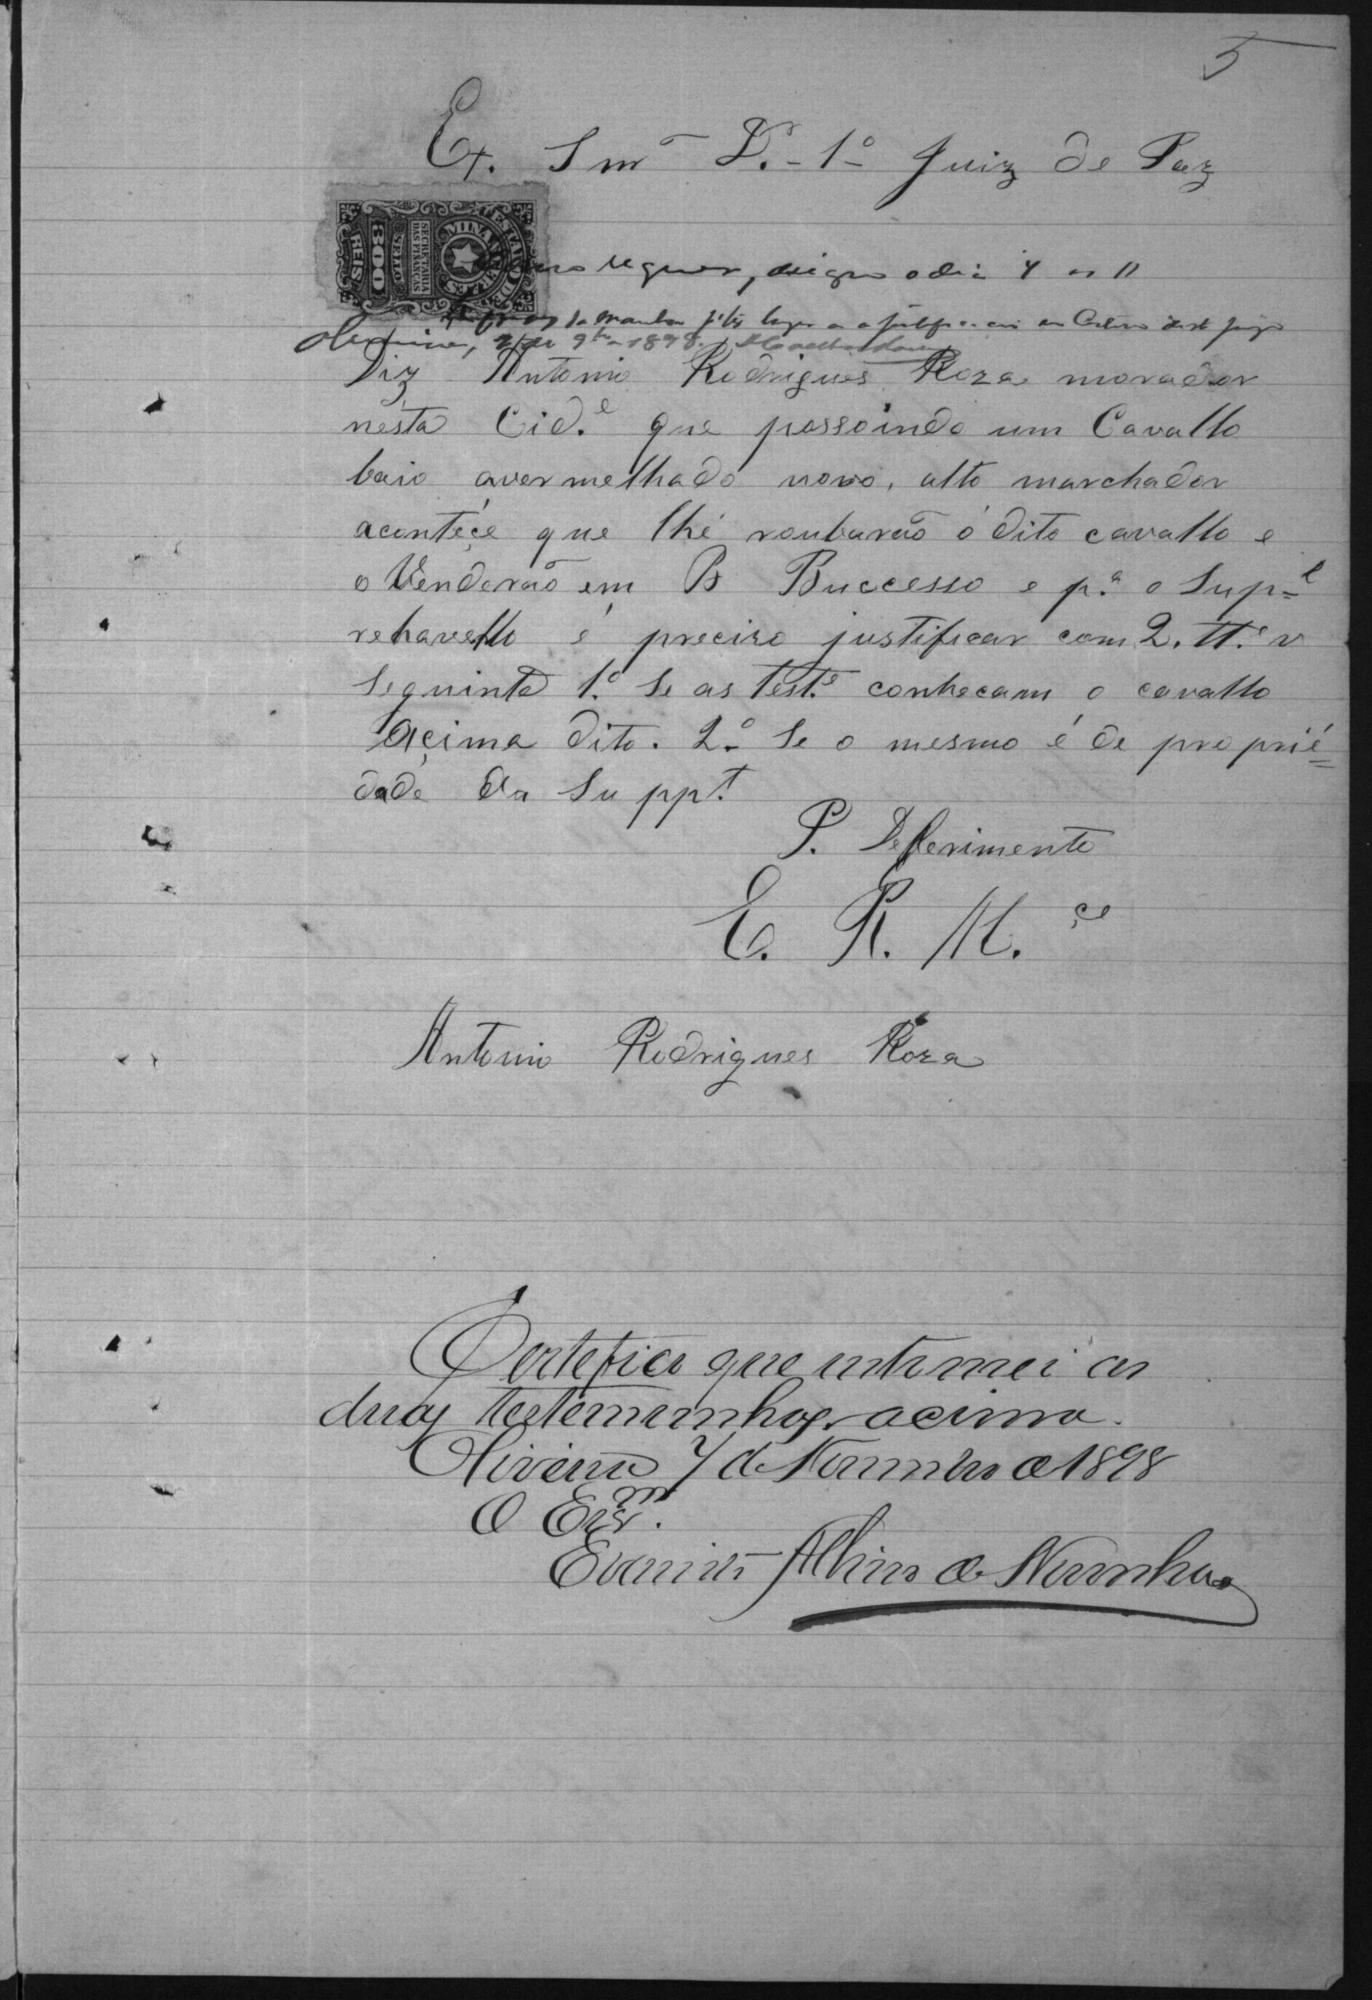 5
Ex. Smº Dr. 1º Juiz de Paz
ESTADO DE MINAS GERAES
SECRETARIA DAS FINANÇAS
SELLO
800
REIS
requer, designo o dia 7 as 11
da manhan
1898.
Diz Antonio Rodrigues Roza morador
nesta Cid.e que possoindo um Cavallo
baio avermelhado novo, alto marchador
acontéçe que lhé roubarão ó dito cavallo e
o Venderão em B Buccesso e p.ª o Sup.e
rehavello é preciso justificar com 2. tt.e o
Seguinte 1.º Se as test.e conhecam o cavallo
açima dito. 2.º Se o mesmo é de proprié=
dade da Supp.t
P. Defferimento
E. R. M.ce
Antonio Rodrigues Roza
Certefico que intimei as
duas testemunhas acima.
Oliveira 7 de Novembro de 1898
O Escr.m
Albino de Noronha